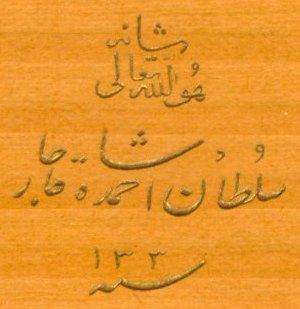 هو الله تعالی شانه
سلطان احمد شاه قاجار
سنه ۱۳۳